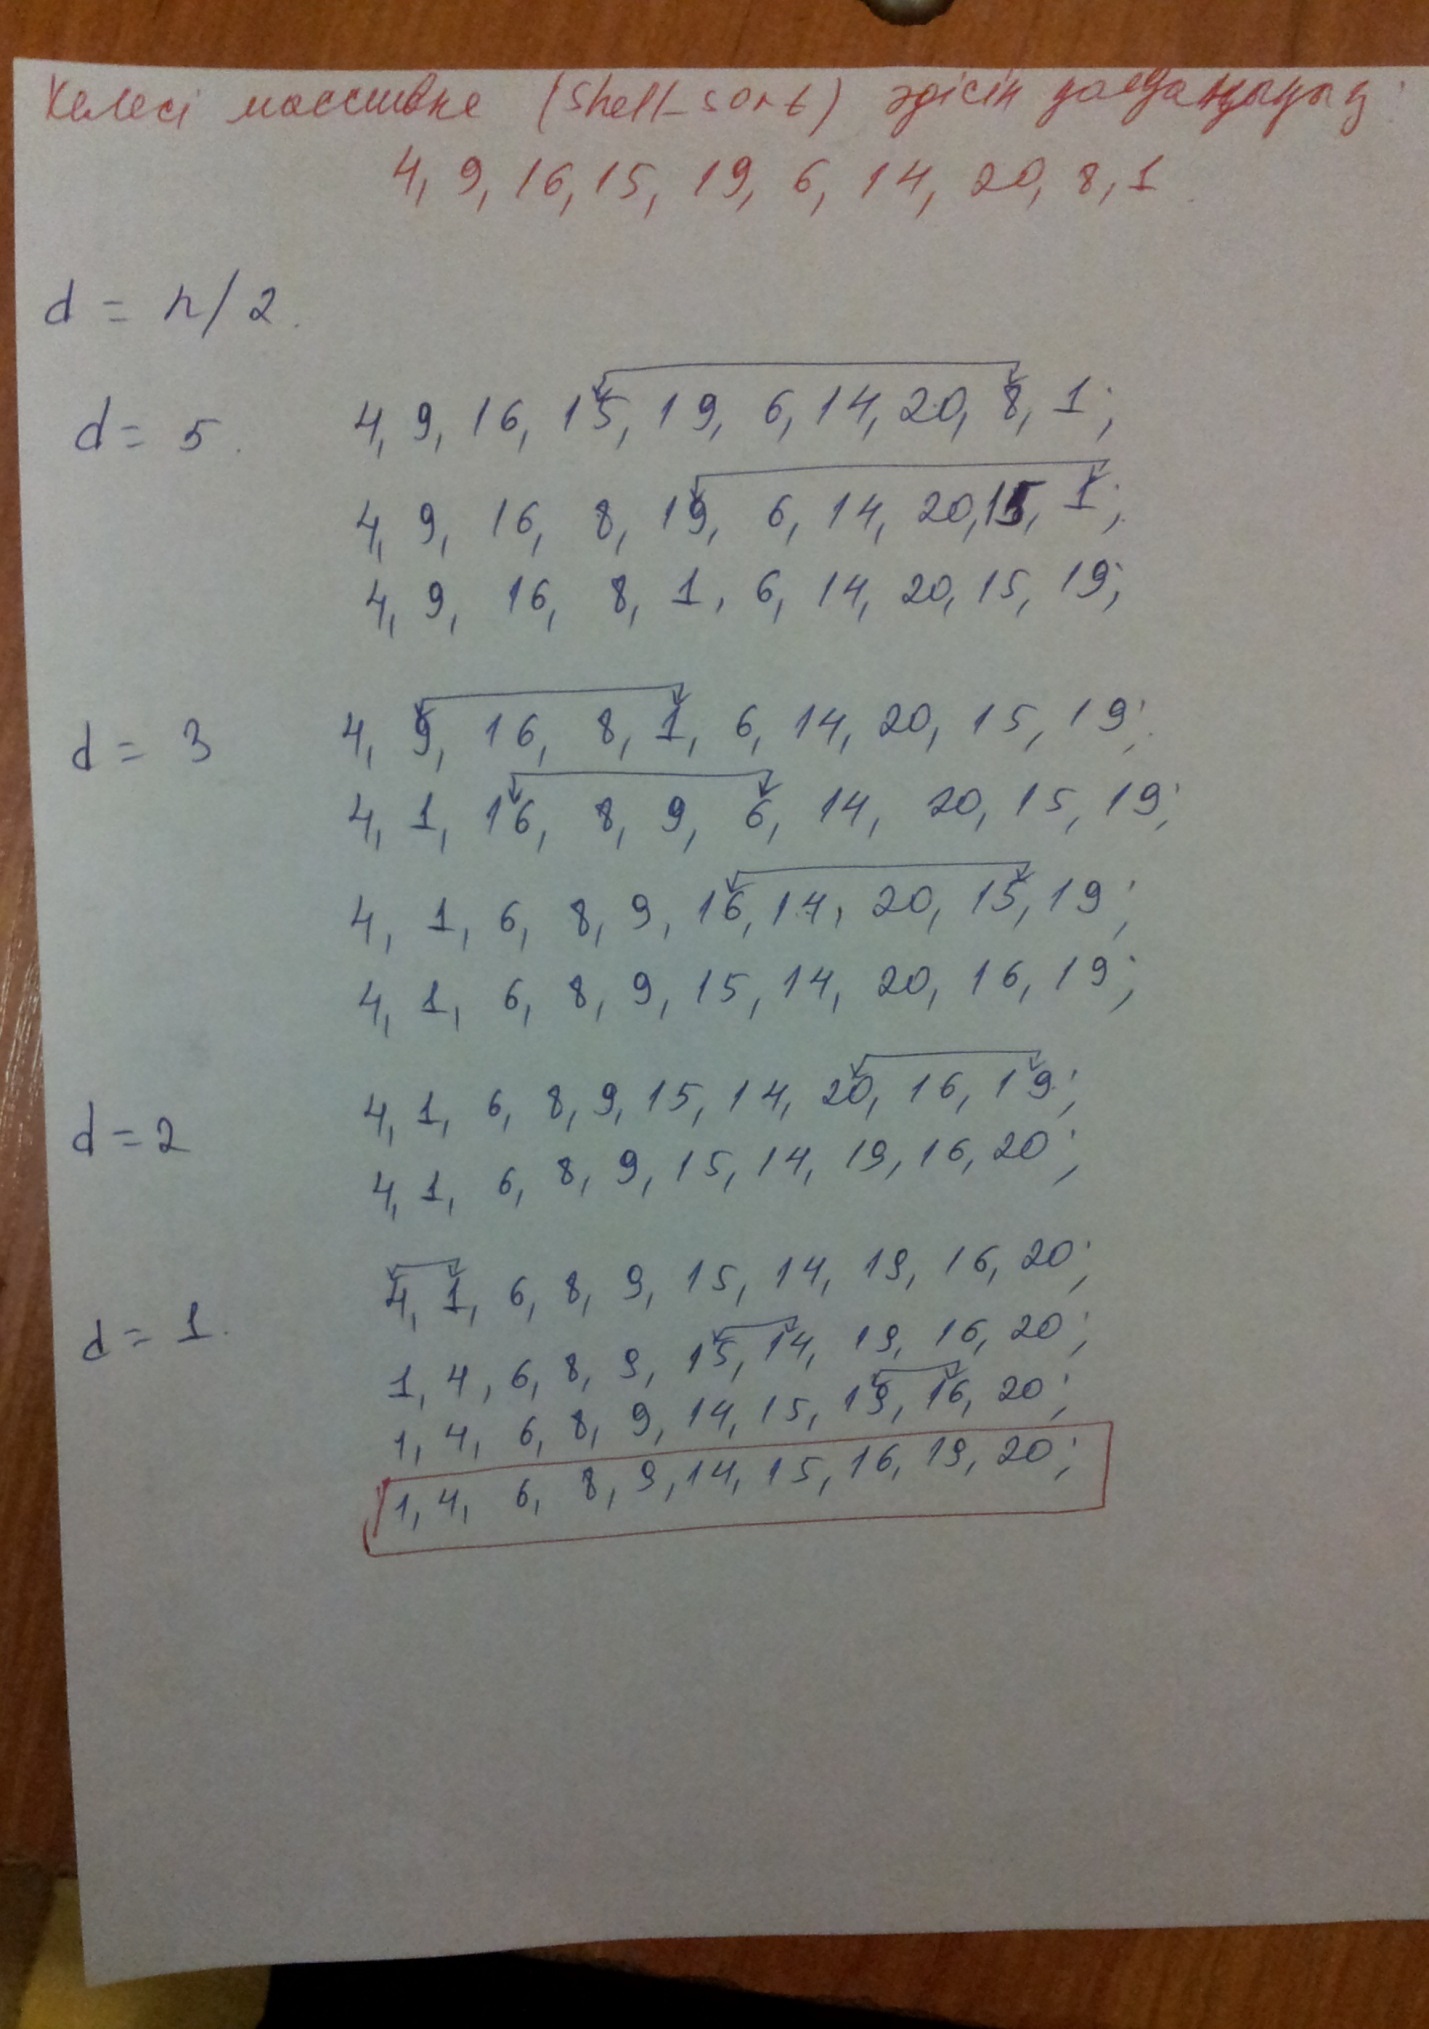 Келесі массивке (Shell_sort) әдісін қолданыңыз:
4, 9, 16, 15, 19, 6, 14, 20, 8, 1
d = n/2.
d = 5. 4, 9, 16, 15, 19, 6, 14, 20, 8, 1;
4, 9, 16, 8, 19, 6, 14, 20, 15, 1;
4, 9, 16, 8, 1, 6, 14, 20, 15, 19;
d = 3 4, 9, 16, 8, 1, 6, 14, 20, 15, 19;
4, 1, 16, 8, 9, 6, 14, 20, 15, 19;
4, 1, 6, 8, 9, 16, 14, 20, 15, 19;
4, 1, 6, 8, 9, 15, 14, 20, 16, 19;
d = 2 4, 1, 6, 8, 9, 15, 14, 20, 16, 19;
4, 1, 6, 8, 9, 15, 14, 19, 16, 20;
d = 1. 4, 1, 6, 8, 9, 15, 14, 19, 16, 20;
1, 4, 6, 8, 9, 15, 14, 19, 16, 20;
1, 4, 6, 8, 9, 14, 15, 19, 16, 20;
1, 4, 6, 8, 9, 14, 15, 16, 19, 20;